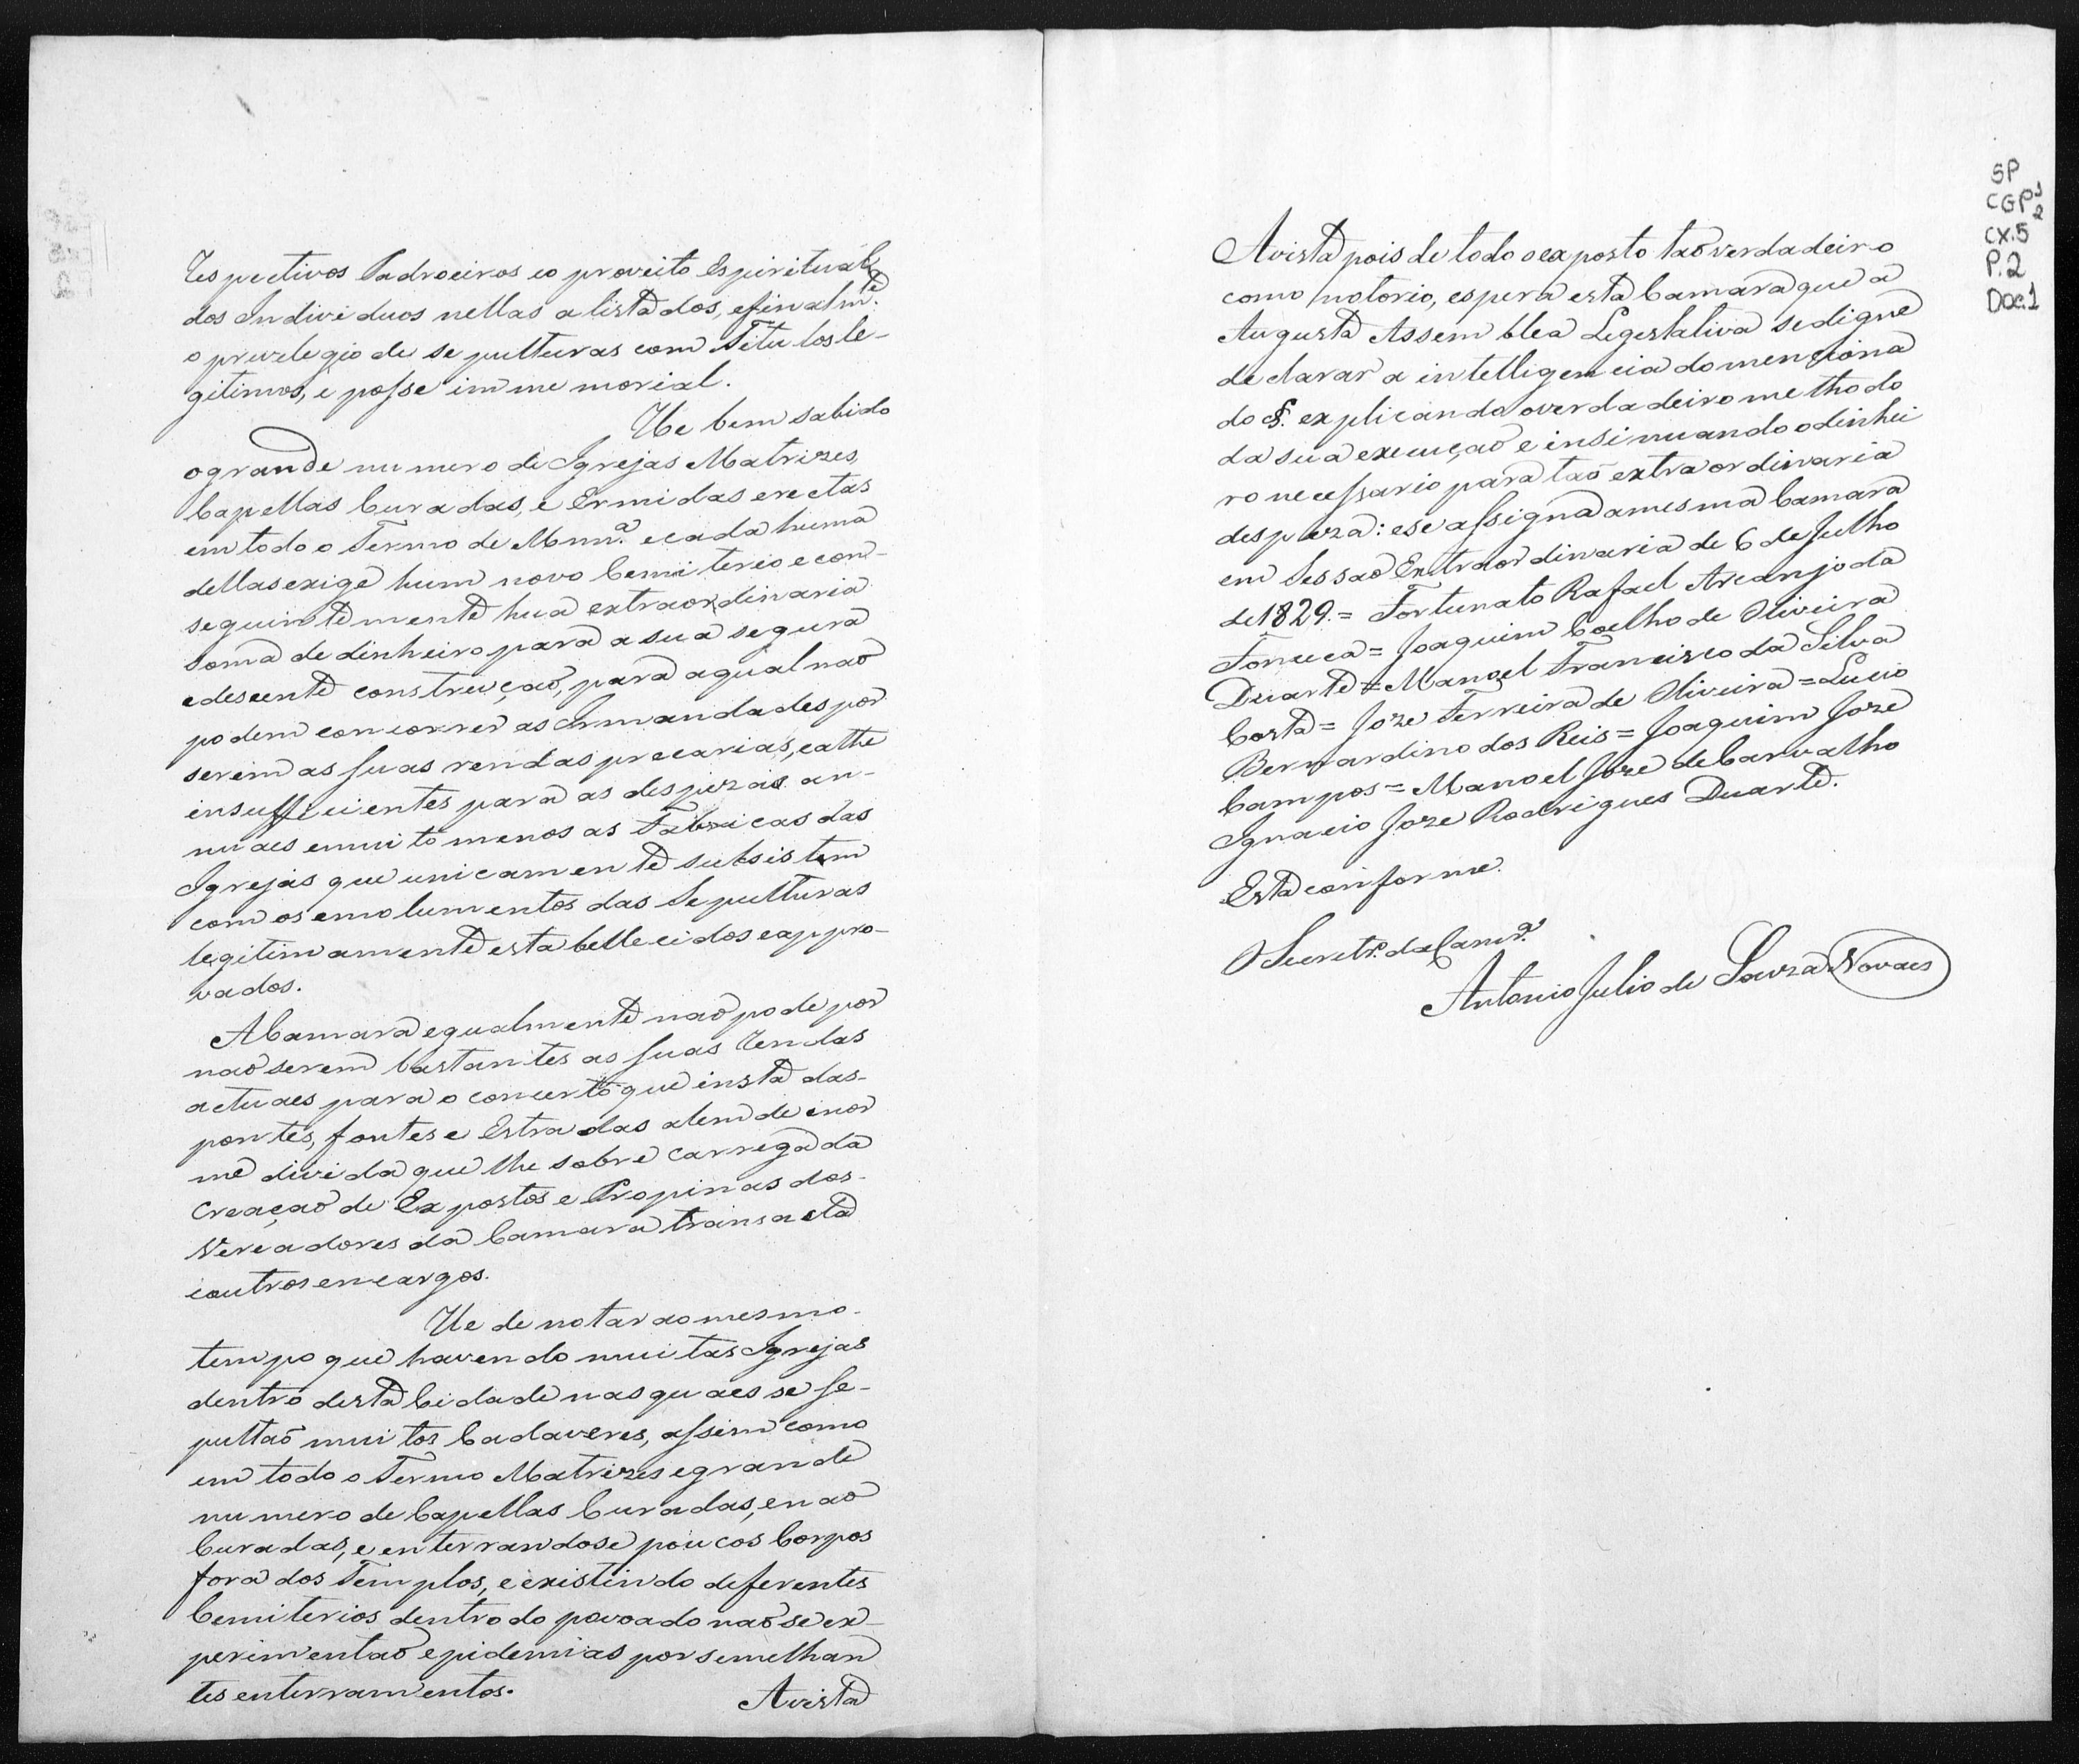 respectivos Padroeiros eo proveito Espiritual
dos Individuos nellas alistados, efinalm.te
o previlegio de sepulturas com Titulos le-
gitimos, e posse immemorial.
He bem sabido
o grande numero de Igrejas Matrizes,
Capellas Curadas, e Ermidas erectas
em todo o Termo de Mnna. e cada huma
dellas exige hum novo Cemiterio e con-
seguintemente hua extraordinaria
soma de dinheiro para a sua segura
edescente construcção, para a qual não
podem concorrer as Irmandades por
serem as suas rendas precarias, eathe
insufficientes para as despezas an-
nuaes emuito menos as Fabricas das
Igrejas que unicamente subsistem
com os emolumentos das Sepulturas
legitimamente estabellecidos eappro-
vados.
A Camara egualmente não pode por
não serem bastantes as suas rendas
actuaes para o concerto que insta das
pontes, fontes e Estradas alem de inor
me divida que lhe sobre carrega da
Creação de Expostos e Propinas dos
Vereadores da Camara transacta
eoutros encargos.
He de notar ao mesmo
tempo que havendo muitas Igrejas
dentro desta Cidade nas quaes se se-
pultão muitos Cadaveres, assim como
em todo o Termo Matrizes e grande
numero de Capellas Curadas, e não
Curadas, e enterrandose poucos Corpos
fora dos Templos, e existindo deferentes
Cemiterios dentro do povoado não se ex-
perimentão epidemias por semelhan
tes enterramentos.
Avista
Avista pois de todo o exposto tão verdadeiro
como notorio, espera esta Camara que a
Augusta Assemblea Legeslativa se digne
declarar a intelligencia do menciona
do §. explicando o verdadeiro methodo
da sua execução e insinuando o dinhei
ro necessario para tão extraordinaria
despeza: e se assigna a mesma Camara
em Sessão Extraordinaria de 6 de Julho
de 1829. = Fortunato Rafael Arcanjo da
Fonceca = Joaquim Coelho de Oliveira
Duarte = Manoel Francisco da Silva
Costa = Joze Ferreira de Oliveira = Lucio
Bernardino dos Reis = Joaquim Joze
Campos = Manoel Joze de Carvalho
Ignacio Joze Rodrigues Duarte.
Esta conforme.
O Secretr.º da Camr.ª
Antonio Julio de Souza Novaes
SP
CGP 1/2
CX.5
P.2
Doc.1